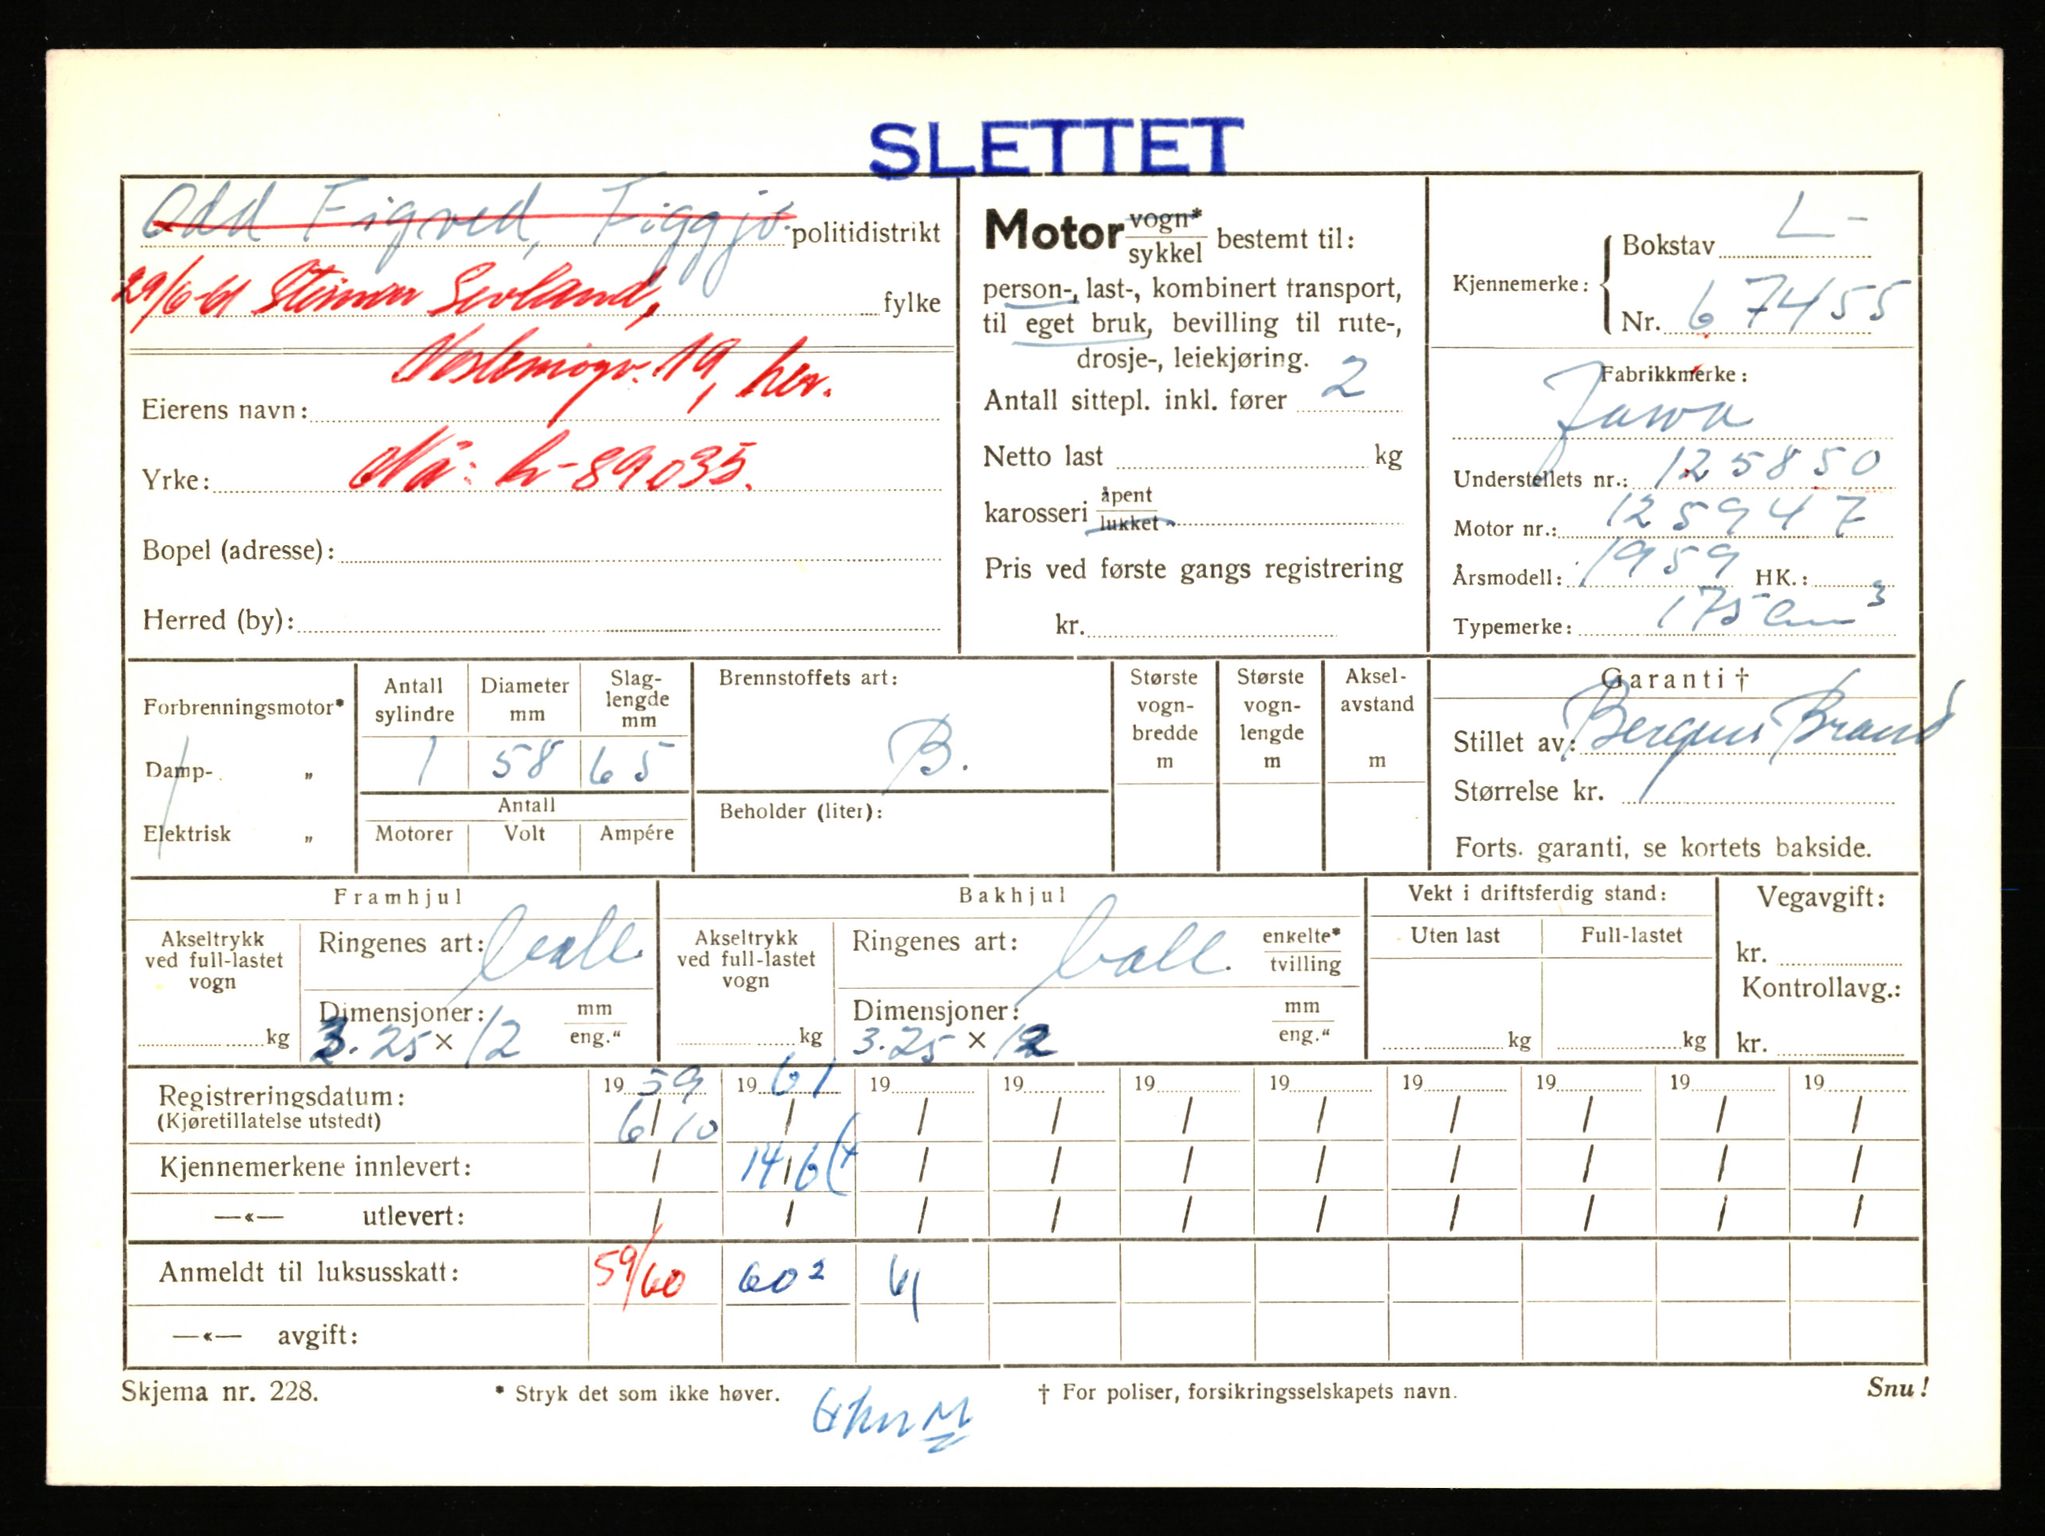 SLETTET
Odd Figved, Figgjo. politidistrikt
29/6-61 Steinar Sevland, fylke
19, her.
Eierens navn:
Nå: L-89035.
Yrke:
Bopel (adresse):
Herred (by):
Motor vogn* / sykkel bestemt til:
person-, last-, kombinert transport,
til eget bruk, bevilling til rute-,
drosje-, leiekjøring.
Antall sittepl. inkl. fører 2
Netto last kg
karosseri åpent / lukket
Pris ved første gangs registrering
kr.
Kjennemerke: Bokstav L-
Nr. 67455
Fabrikkmerke:
Jawa
Understellets nr.: 125850
Motor nr.: 125947
Årsmodell: 1959 HK.:
Typemerke: 175 cm3
Forbrenningsmotor*
Damp- „
Elektrisk „
Antall sylindre Diameter mm Slag-lengde mm
1 58 65
Antall
Motorer Volt Ampére
Brennstoffets art:
B.
Beholder (liter):
Største vogn-bredde m
Største vogn-lengde m
Aksel-avstand m
Garanti †
Stillet av: Bergens Brand
Størrelse kr.
Forts. garanti, se kortets bakside.
Framhjul
Akseltrykk ved full-lastet vogn
kg
Ringenes art: ball.
Dimensjoner: mm / eng.“
3.25 × 12
Bakhjul
Akseltrykk ved full-lastet vogn
kg
Ringenes art: ball. enkelte* / tvilling
Dimensjoner: mm / eng.“
3.25 × 12
Vekt i driftsferdig stand:
Uten last Full-lastet
kg kg
Vegavgift:
kr.
Kontrollavg.:
kr.
Registreringsdatum: 19 59 19 61 19 19 19 19 19 19 19 19
(Kjøretillatelse utstedt) 6/10 / / / / / / / / /
Kjennemerkene innlevert: / 14/6 / / / / / / / /
—«— utlevert: / / / / / / / / / /
Anmeldt til luksusskatt: 59/60 60² 61
—«— avgift:
Skjema nr. 228. * Stryk det som ikke høver. † For poliser, forsikringsselskapets navn. Snu!